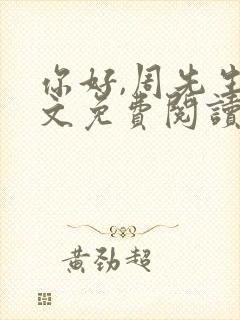 你好,周先生
文免費閱讀
黃勁超